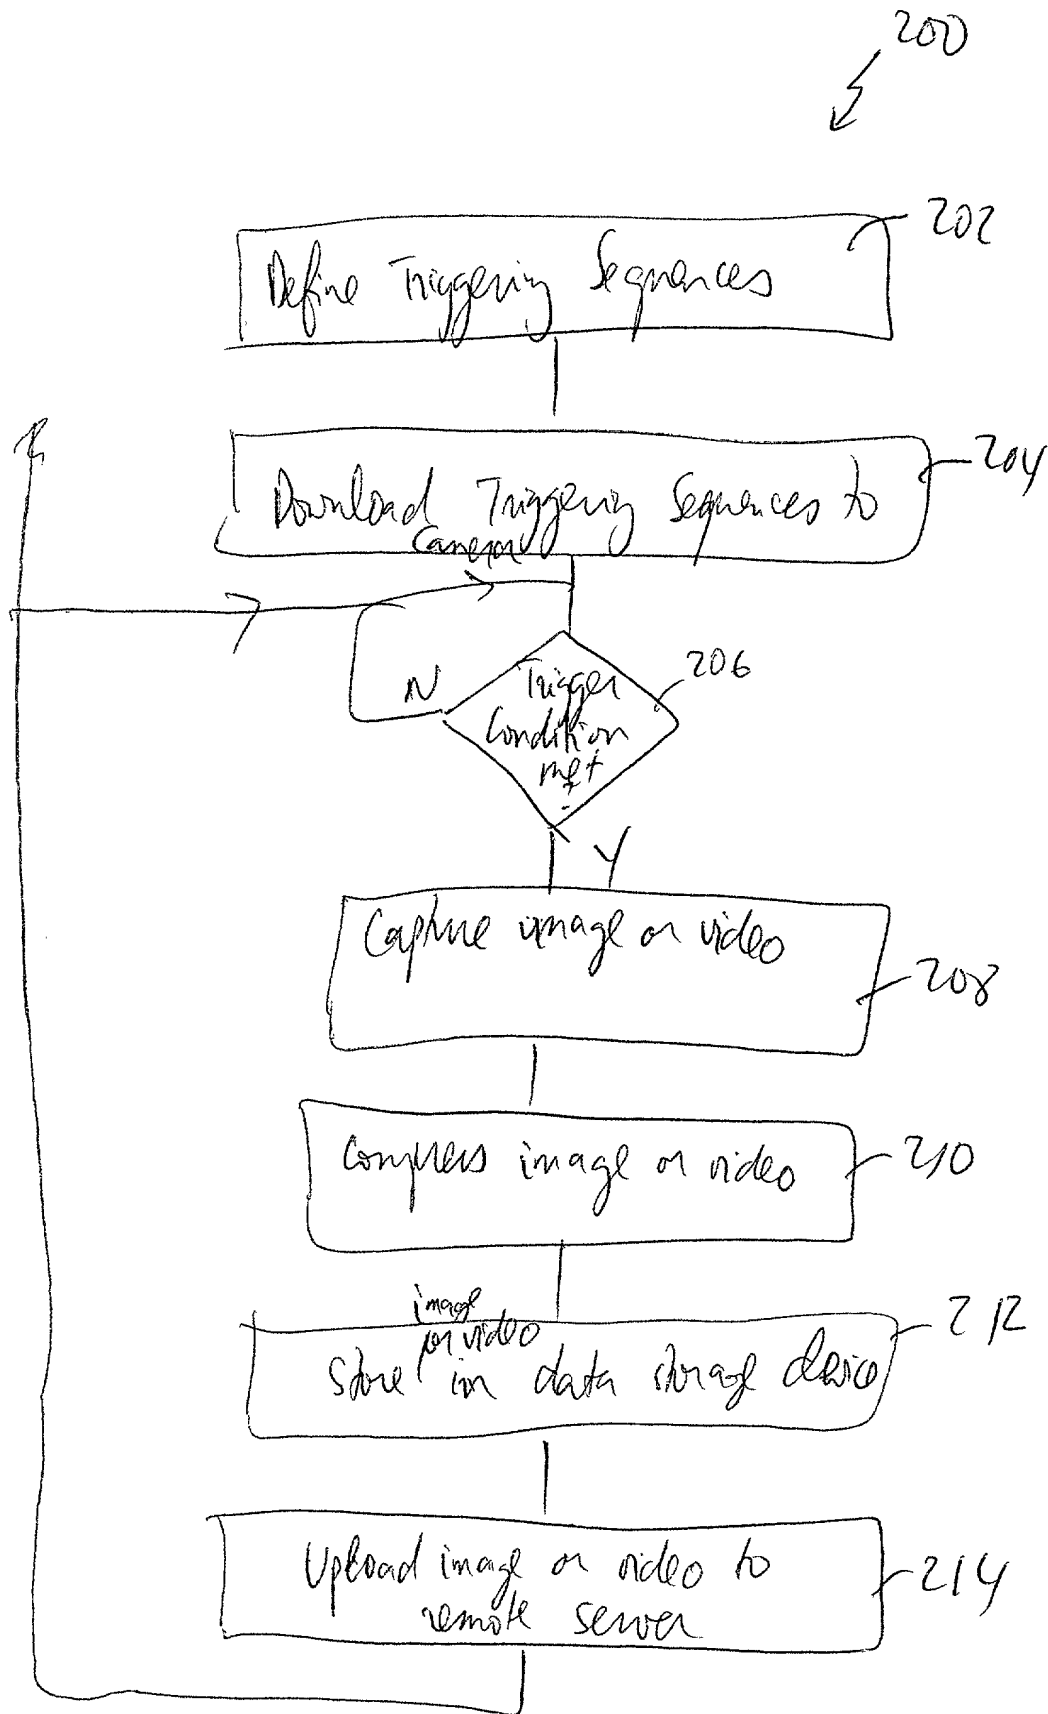 200
202
Define Triggering Sequences
204
Download Triggering Sequences to
Camera
206
N
Trigger
Condition
met
Y
Capture image or video
208
Compress image or video
210
212
image
or video
Store in data storage device
Upload image or video to
remote server
214